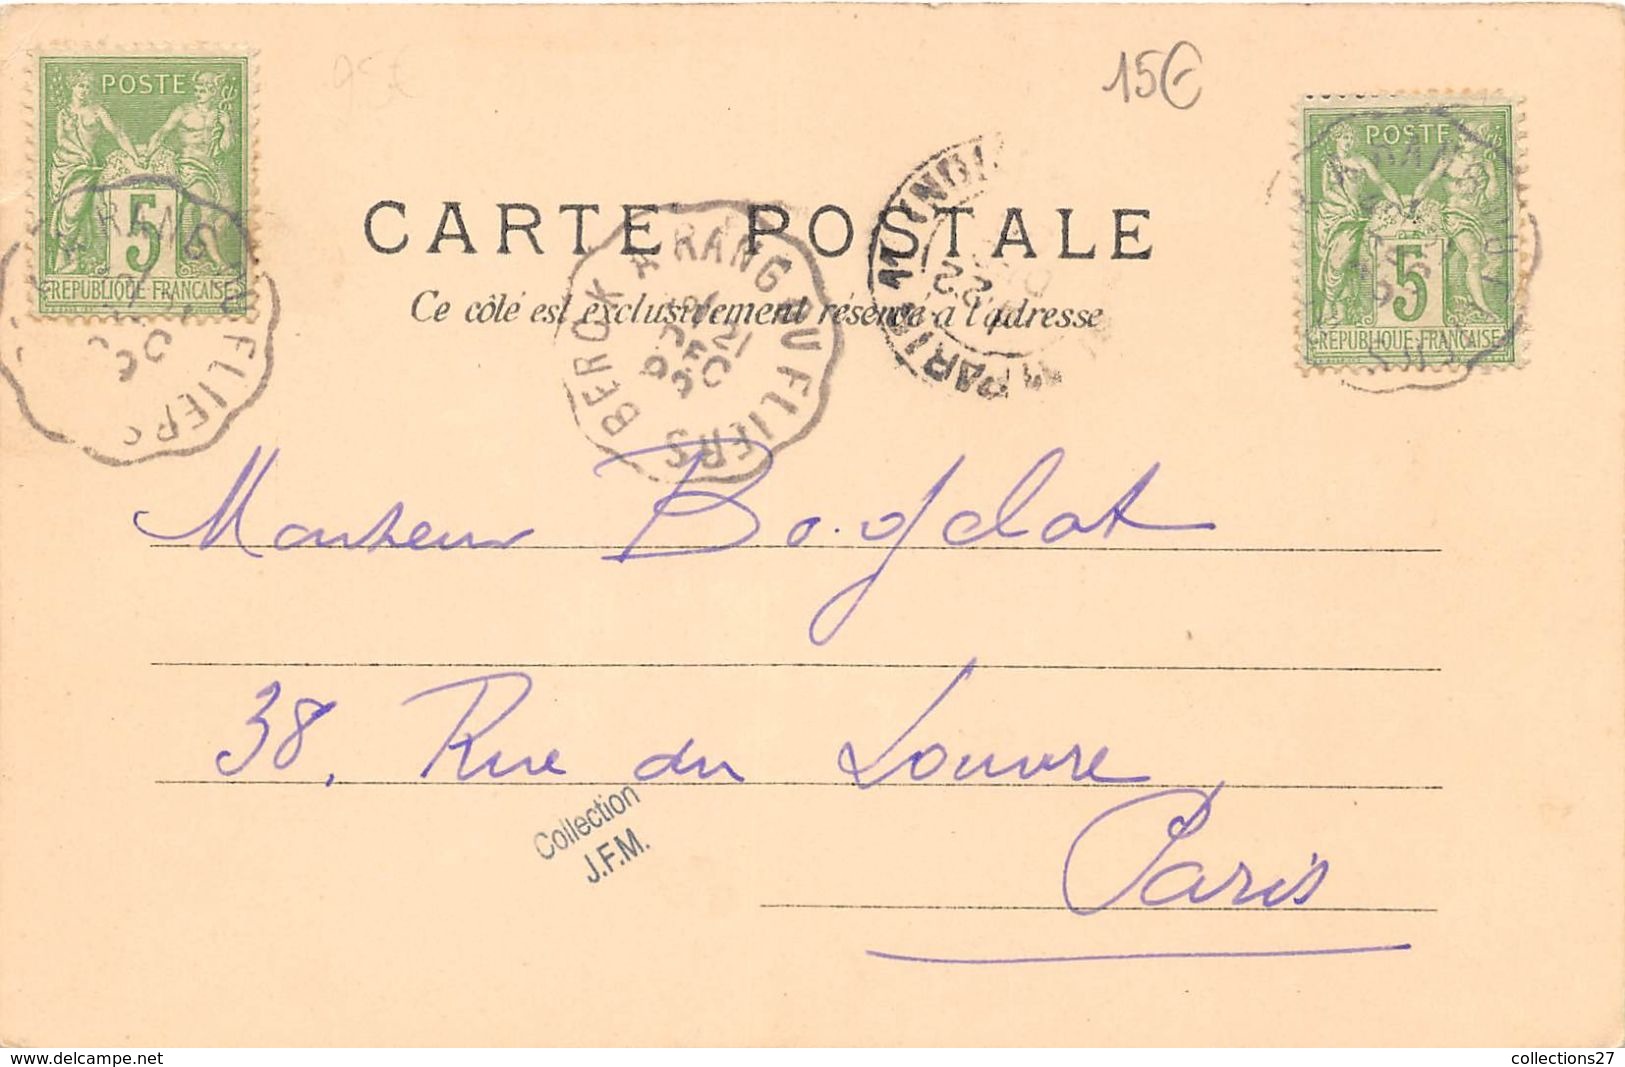 95€
15€
POSTE
5
REPUBLIQUE FRANCAISE
POSTE
5
REPUBLIQUE FRANÇAISE
CARTE POSTALE
Ce côté est exclusivement réservé à l'adresse
BERCK A RANG DU FLIERS
21
DEC
Monsieur Bogelot
38, Rue du Louvre
Paris
Collection
J.F.M.
www.delcampe.net
collections27